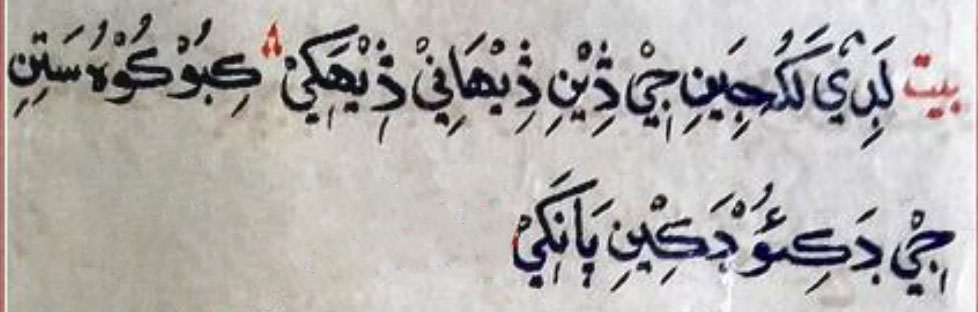 بيت لَدِيْ جَنِ جِيْ ڎِيْنِ ڎِيْهَانِيْ ڎِيْهَکِيْ کِبُوْ کُوْهُ سَنِنِ
جِيْ دَکِئُوْ دَکِيْنِ پَانَکِيْ